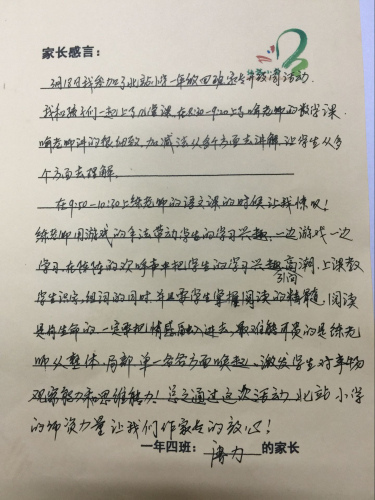 家长感言：
3月18日我参加了北站小学一年级四班家长开放周活动.
我和孩子们一起上了几堂课.在8:30-9:10上了喻老师的数学课.
喻老师讲的很细致.加减法从多个方面去讲解.让学生从多
个方面去理解.
在9:50-10:30上徐老师的语文课的时候让我惊叹!
徐老师用游戏的手法带动学生的学习兴趣.一边游戏一边
学习.在的欢呼声中把学生的学习兴趣高潮.上课教
引向
学生识字,组词的同时并且要学生掌握阅读的精髓.阅读
是有生命的一定要把情感融入进去,最难能可贵的是徐老
师从整体.局部.单一各方面唤起.激发学生对事物
观察能力和思维能力!总之通过这次活动.北站小学
的师资力量让我们作家长的放心!
一年四班: 力 的家长